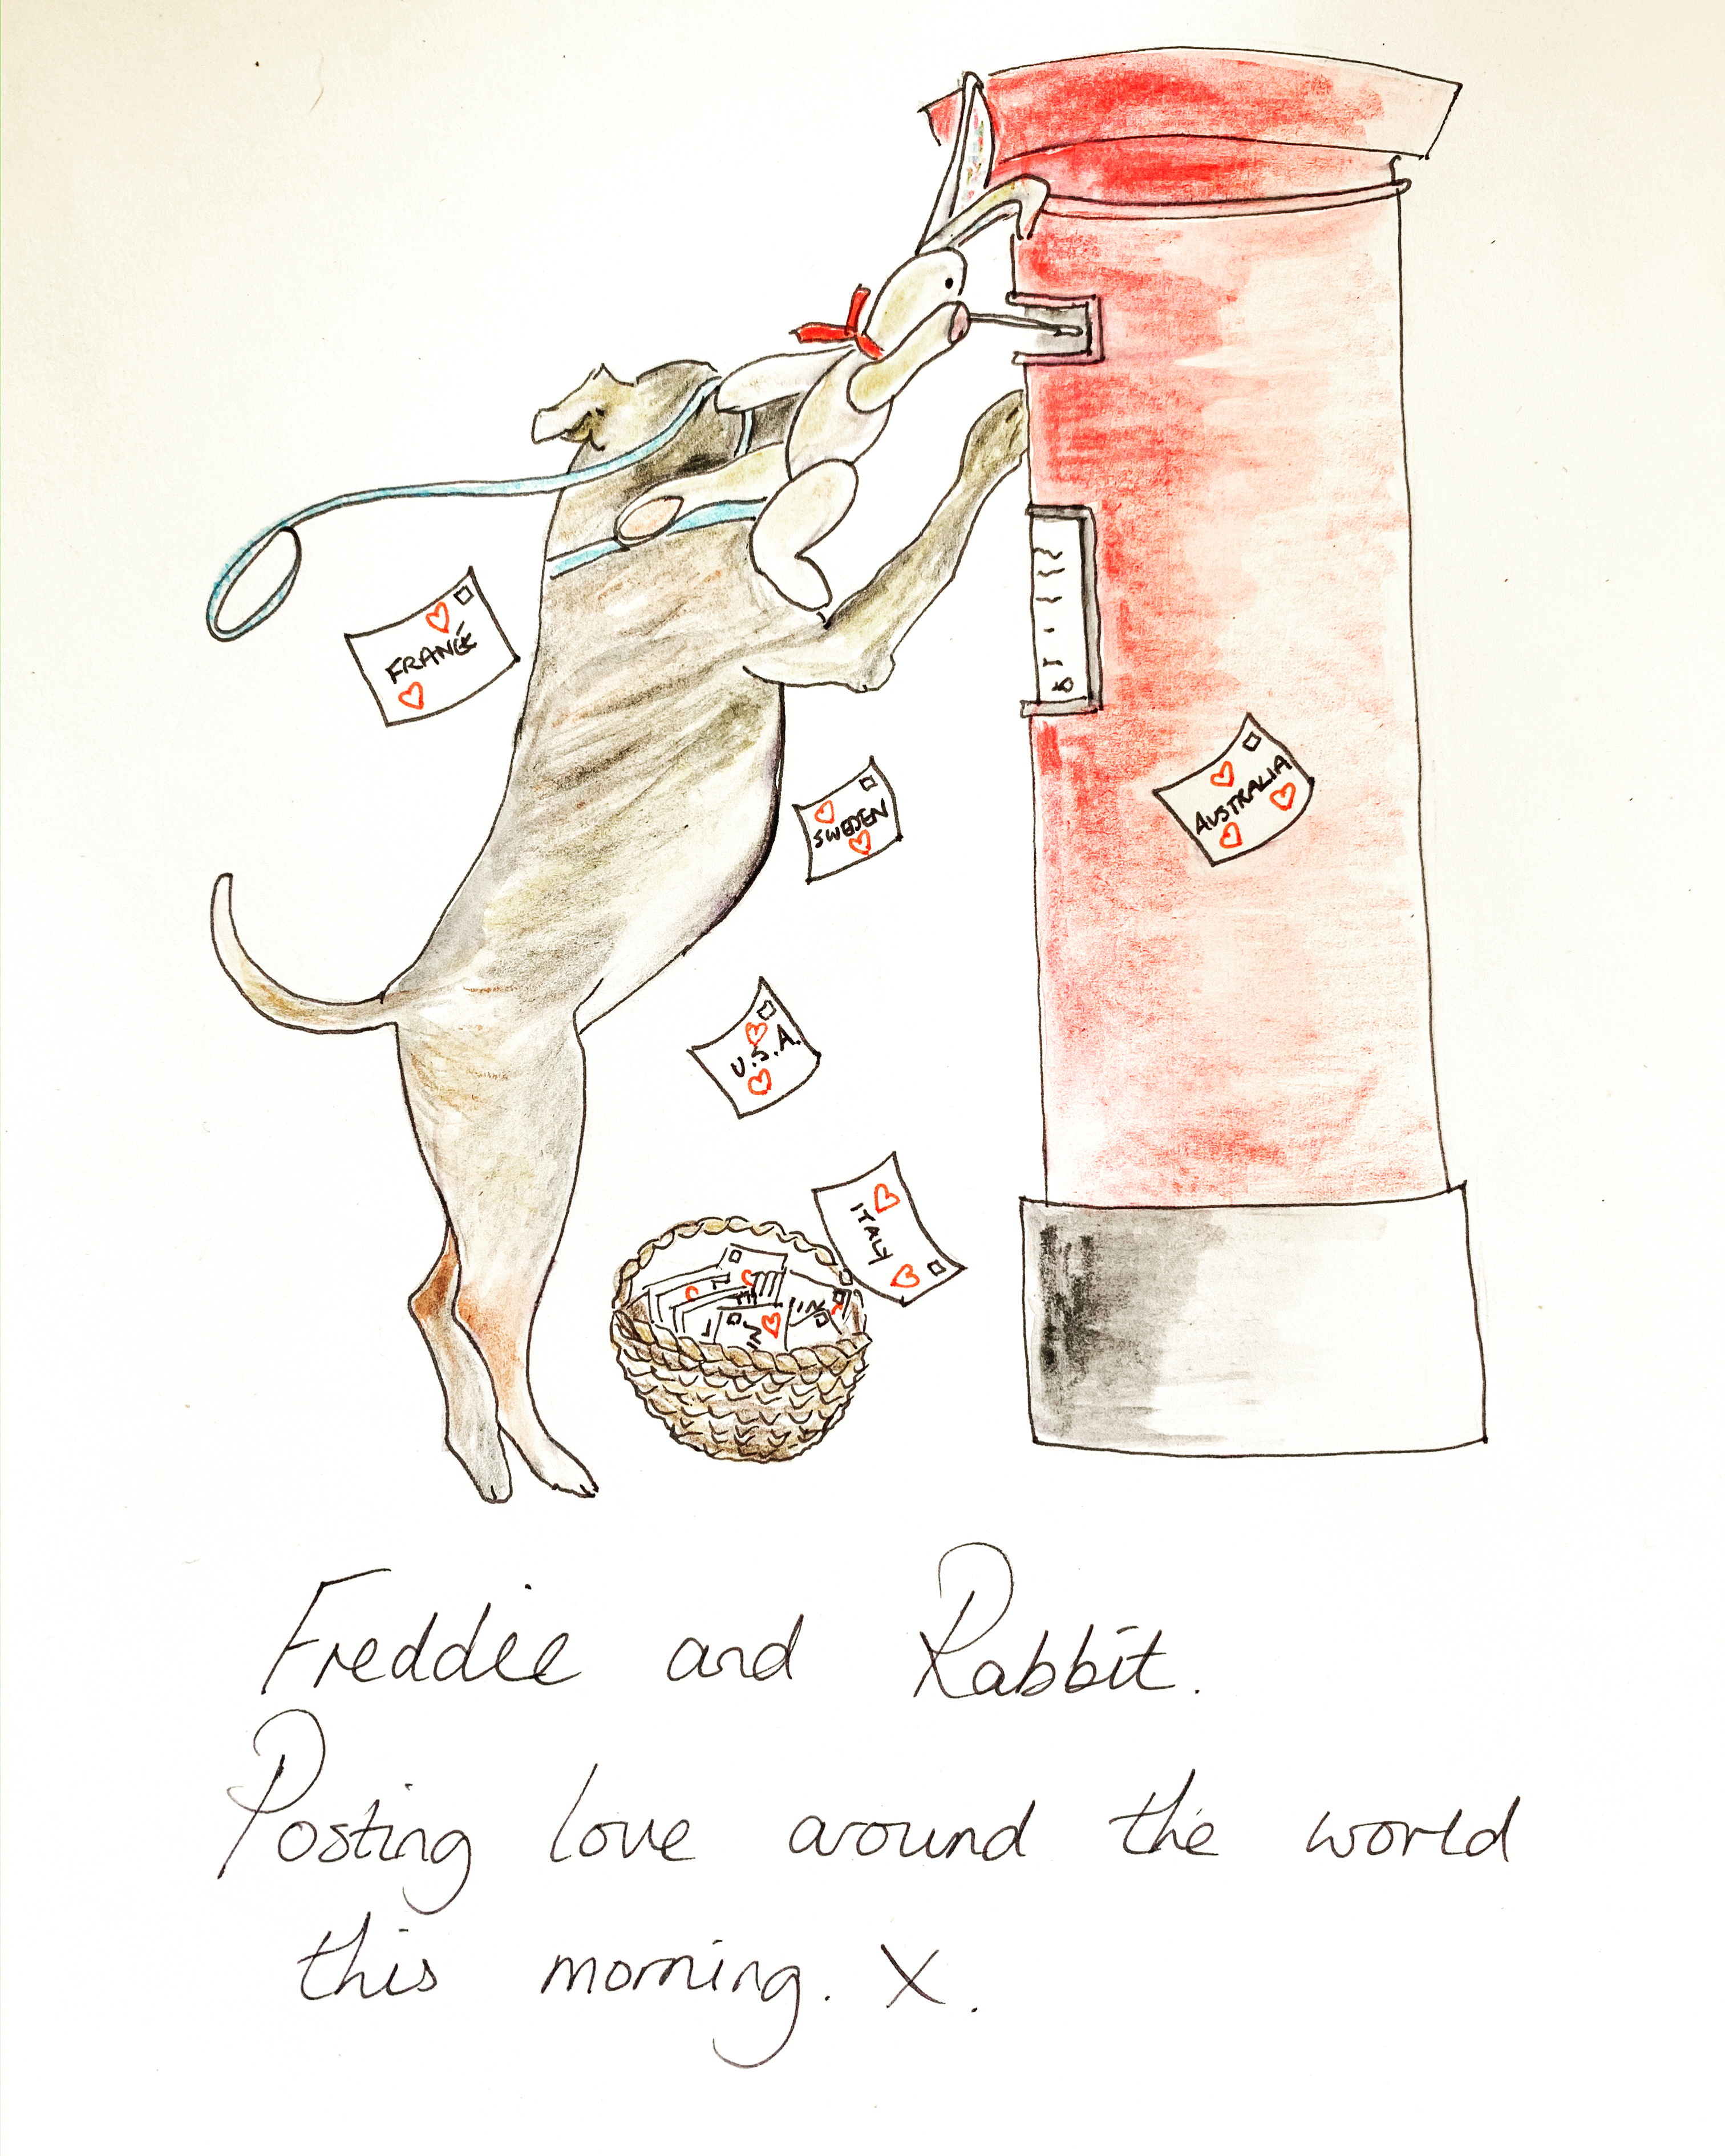 FRANCE
SWEDEN
AUSTRALIA
U.S.A.
ITALY
Freddie and Rabbit.
Posting love around the world
this morning. X.